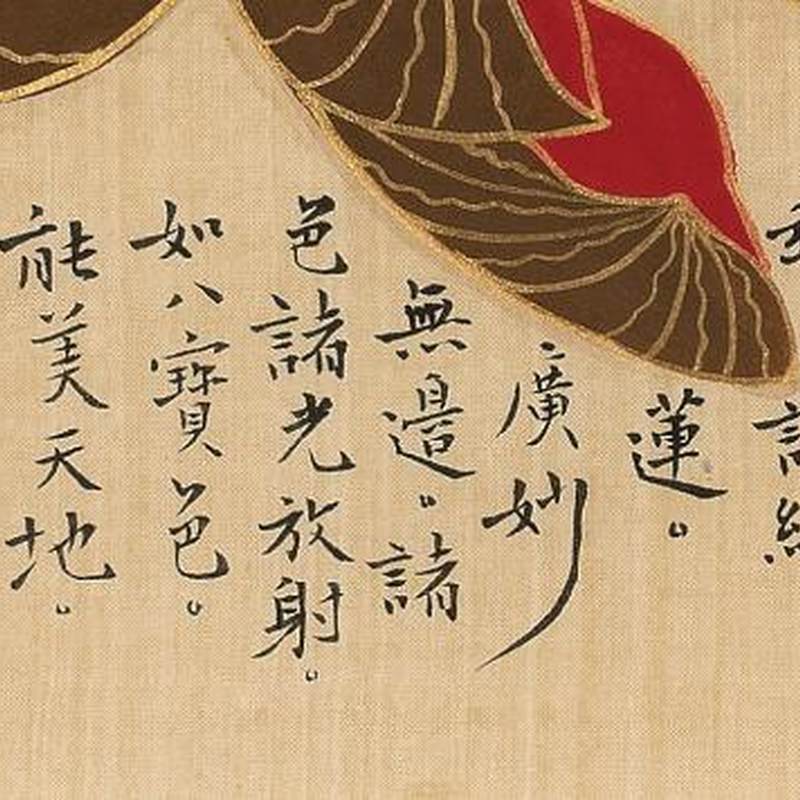 蓮。
廣妙
無邉。諸
色諸光放射。
如八寶色。
能美天地。